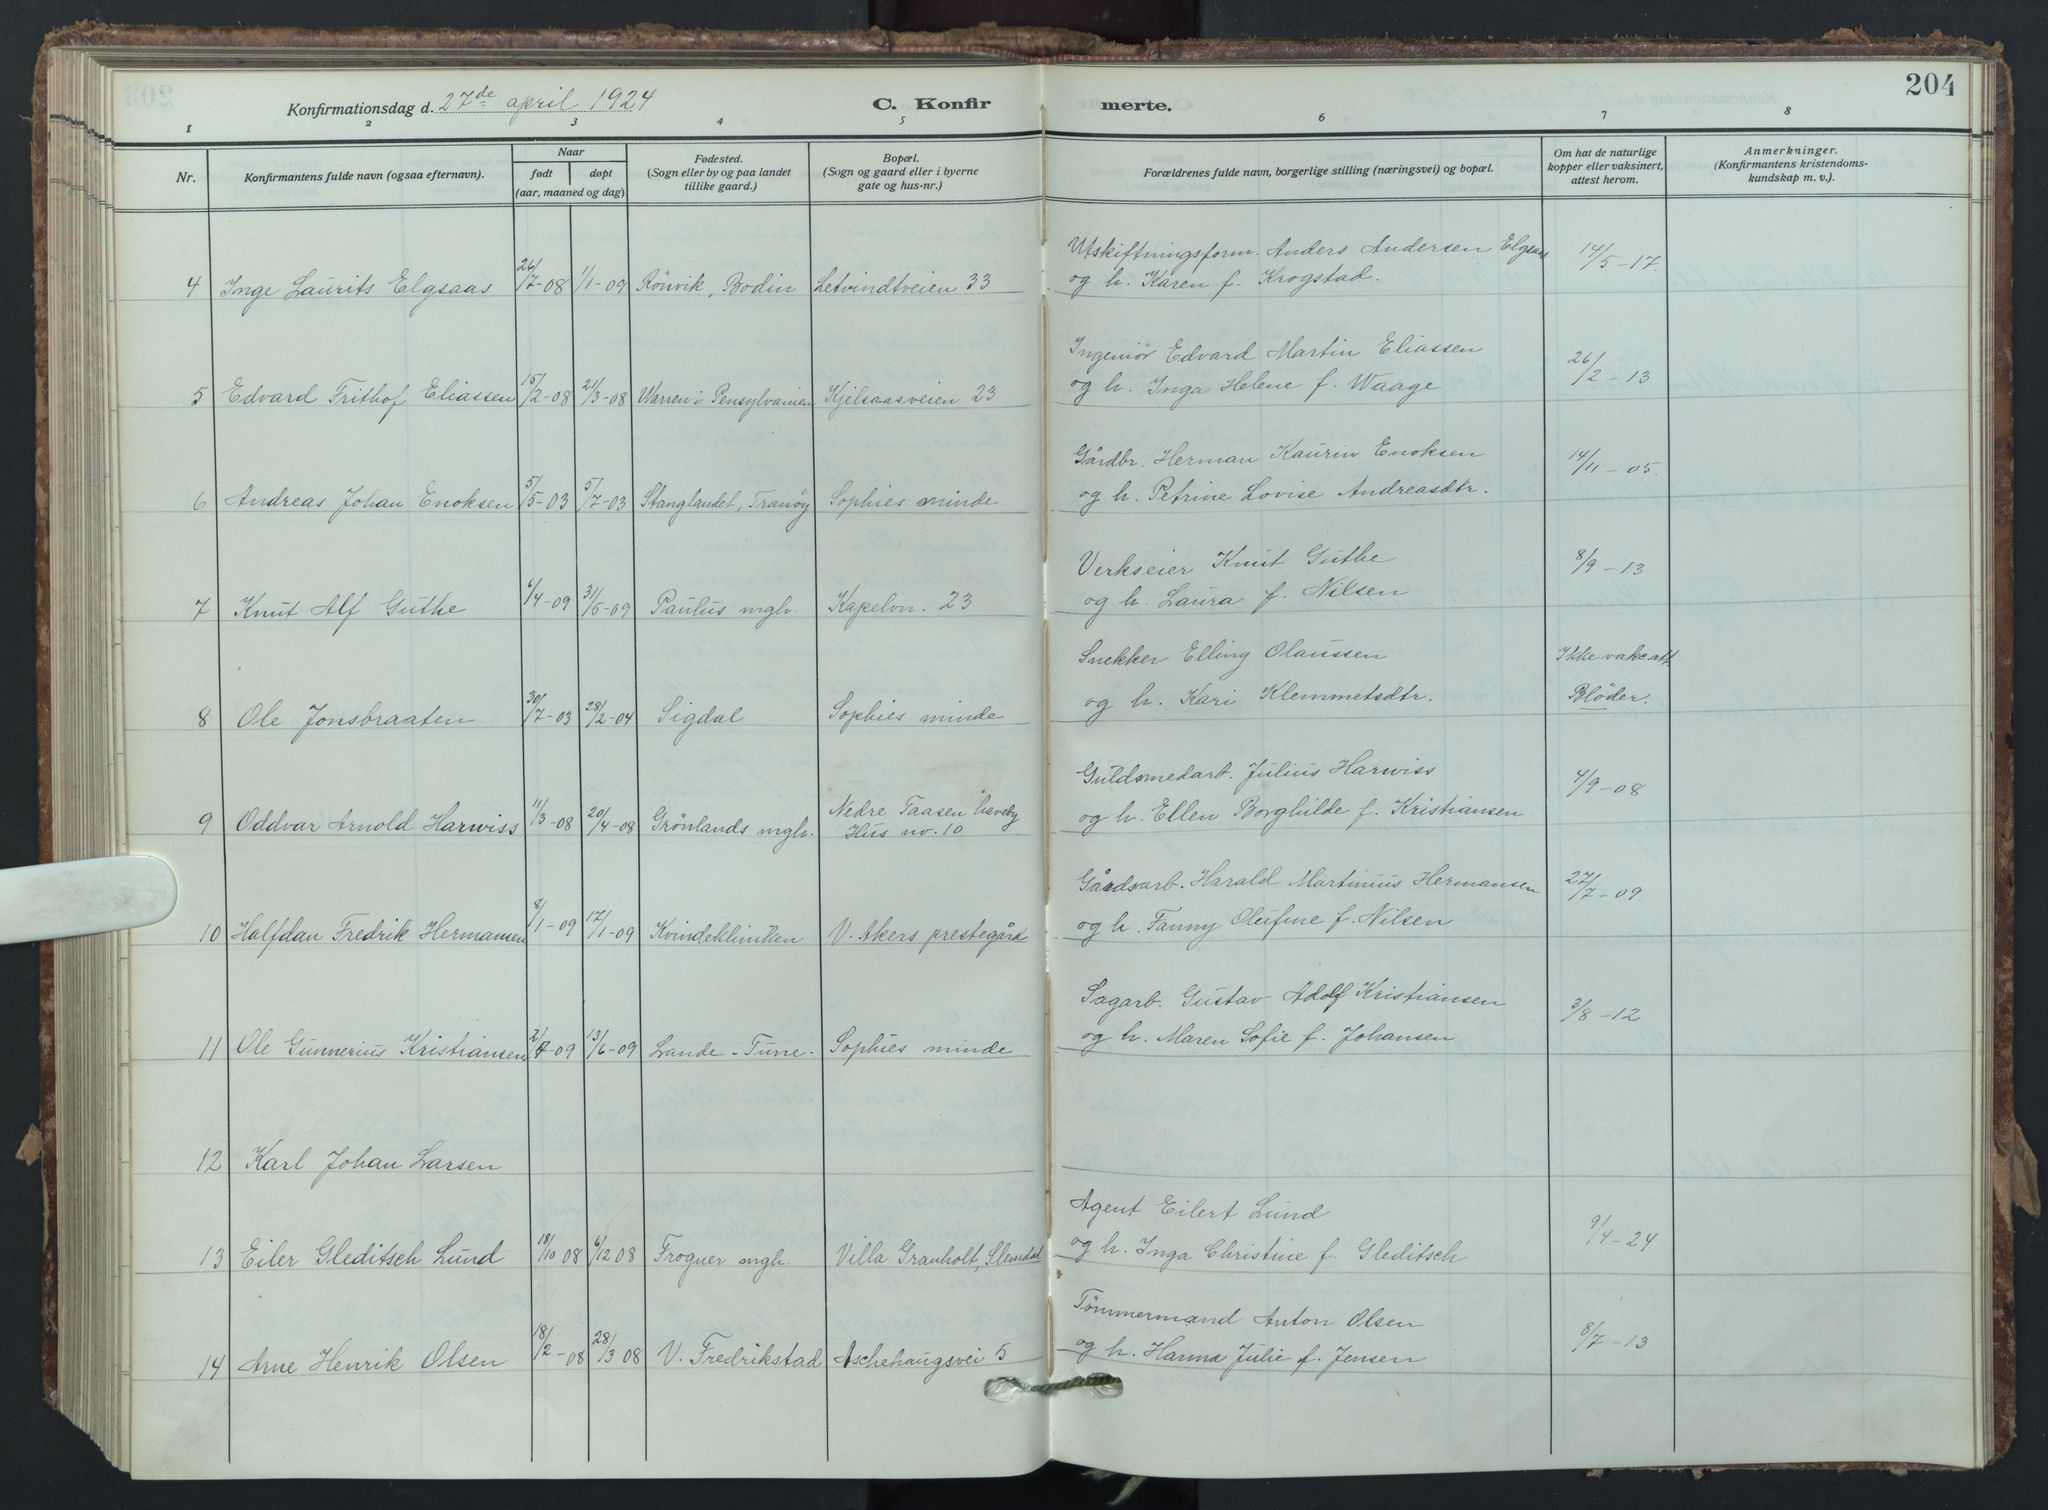 204
Konfirmationsdag d. 27de april 1924 C. Konfir merte.
1 2 3 4 5 6 7 8
Nr. Konfirmantens fulde navn (ogsaa efternavn). Naar født døpt (aar, maaned og dag) Fødested. (Sogn eller by og paa landet tillike gaard.) Bopæl. (Sogn og gaard eller i byerne gate og hus-nr.) Forældrenes fulde navn, borgerlige stilling (næringsvei) og bopæl. Om hat de naturlige kopper eller vaksinert, attest herom. Anmerkninger. (Konfirmantens kristendomskundskap m. v.).
Utskiftningsform. Anders Andersen Elgsaas 14/5-17.
4 Inge Laurits Elgsaas 26/7-08 1/1-09 Rönvik, Bodin Letvindtveien 33 og h. Karen f. Krogstad.
Ingeniör Edvard Martin Eliassen 26/2-13
5 Edvard Frithof Eliassen 15/2-08 21/3-08 Warren i Pensylvanien Kjelsaasveien 23 og h. Inga Helene f. Waage
Gårdbr. Herman Kaurin Enoksen 14/11-05.
6 Andreas Johan Enoksen 5/5-03 5/7-03 Stanglandet, Tranöy Sophies minde og h. Petrine Lovise Andreasdtr.
Verkseier Knut Guthe 8/9-13
7 Knut Alf Guthe 6/4-09 31/5-09 Paulus mgh. Kapelvn. 23 og h. Laura f. Nilsen
Snekker Elling Olaussen Ikke vakc.att.
8 Ole Jonsbraaten 30/7-03 28/2-04 Sigdal Sophies minde og h. Kari Klemmetsdtr. Blöder.
Guldsmedarb. Julius Harwiss 4/9-08
9 Oddvar Arnold Harwiss 11/3-08 20/4-08 Grönlands mgh. Nedre Taasen haveby Hus no. 10 og h. Ellen Borghilde f. Kristiansen
Gårdsarb. Harald Martinius Hermansen 27/7-09
10 Halfdan Fredrik Hermansen 8/1-09 17/1-09 Kvindeklinikken V. Akers prestegård og h. Fanny Olufine f. Nilsen
Sagarb. Gustav Adolf Kristiansen 3/8-12
11 Ole Gunnerius Kristiansen 2/4-09 13/6-09 Lande - Tune. Sophies minde og h. Maren Sofie f. Johansen
12 Karl Johan Larsen
Agent Eilert Lund 9/4-24
13 Eiler Gleditsch Lund 18/10 08 6/12 08 Frogner mgh. Villa Granholt, Slemdal og h. Inga Christine f. Gleditsch
Tömmermand Anton Olsen 8/7-13
14 Arne Henrik Olsen 18/2-08 28/3 08 V. Fredrikstad Aschehaugsvei 5 og h. Hanna Julie f. Jensen